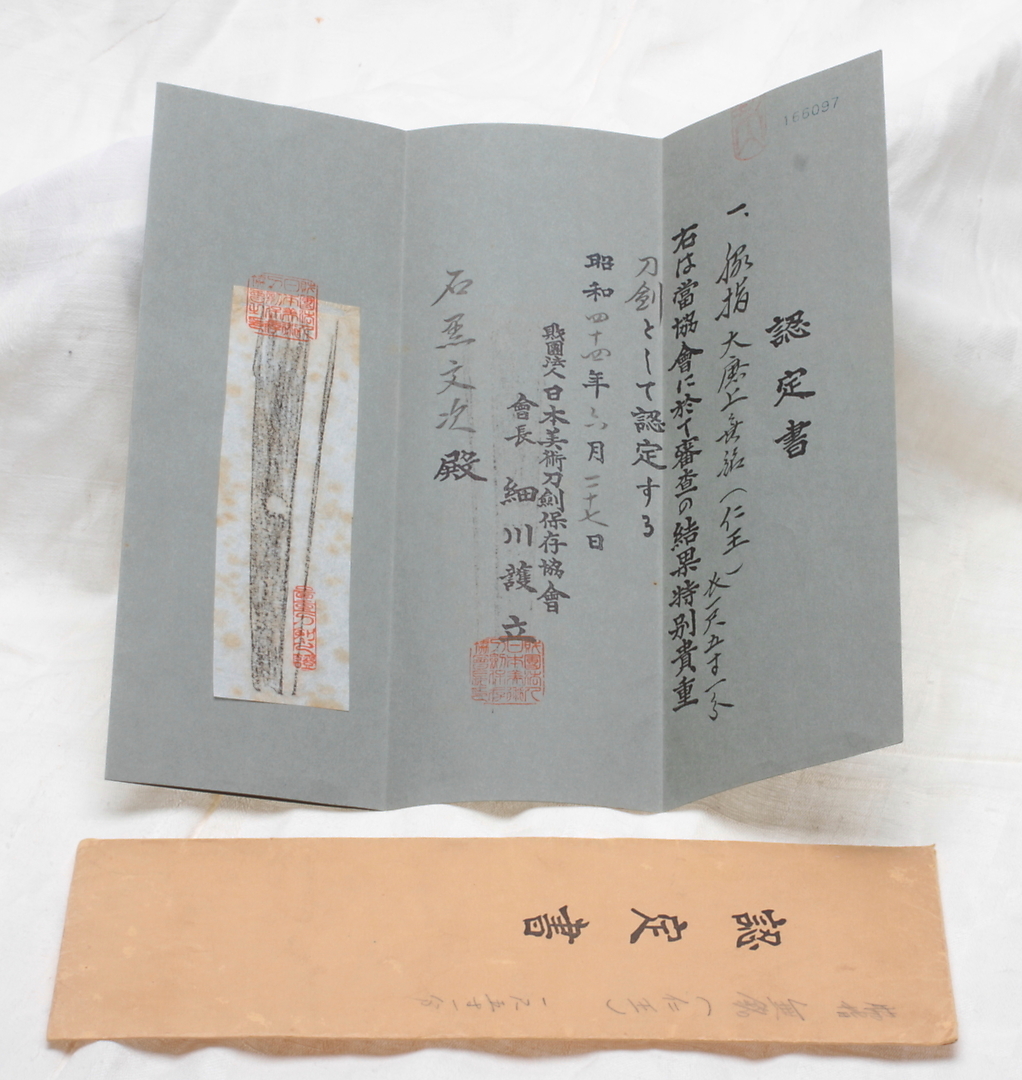 166097
認定書
一、脇指 大磨上無銘（仁王）長一尺五寸一分
右は當協會に於て審査の結果特別貴重
刀劍として認定する
昭和四十四年六月二十七日
財團法人日本美術刀劍保存協會
會長 細川護立
石黒文次殿
認定書
脇指 無銘（仁王）一尺五寸一分